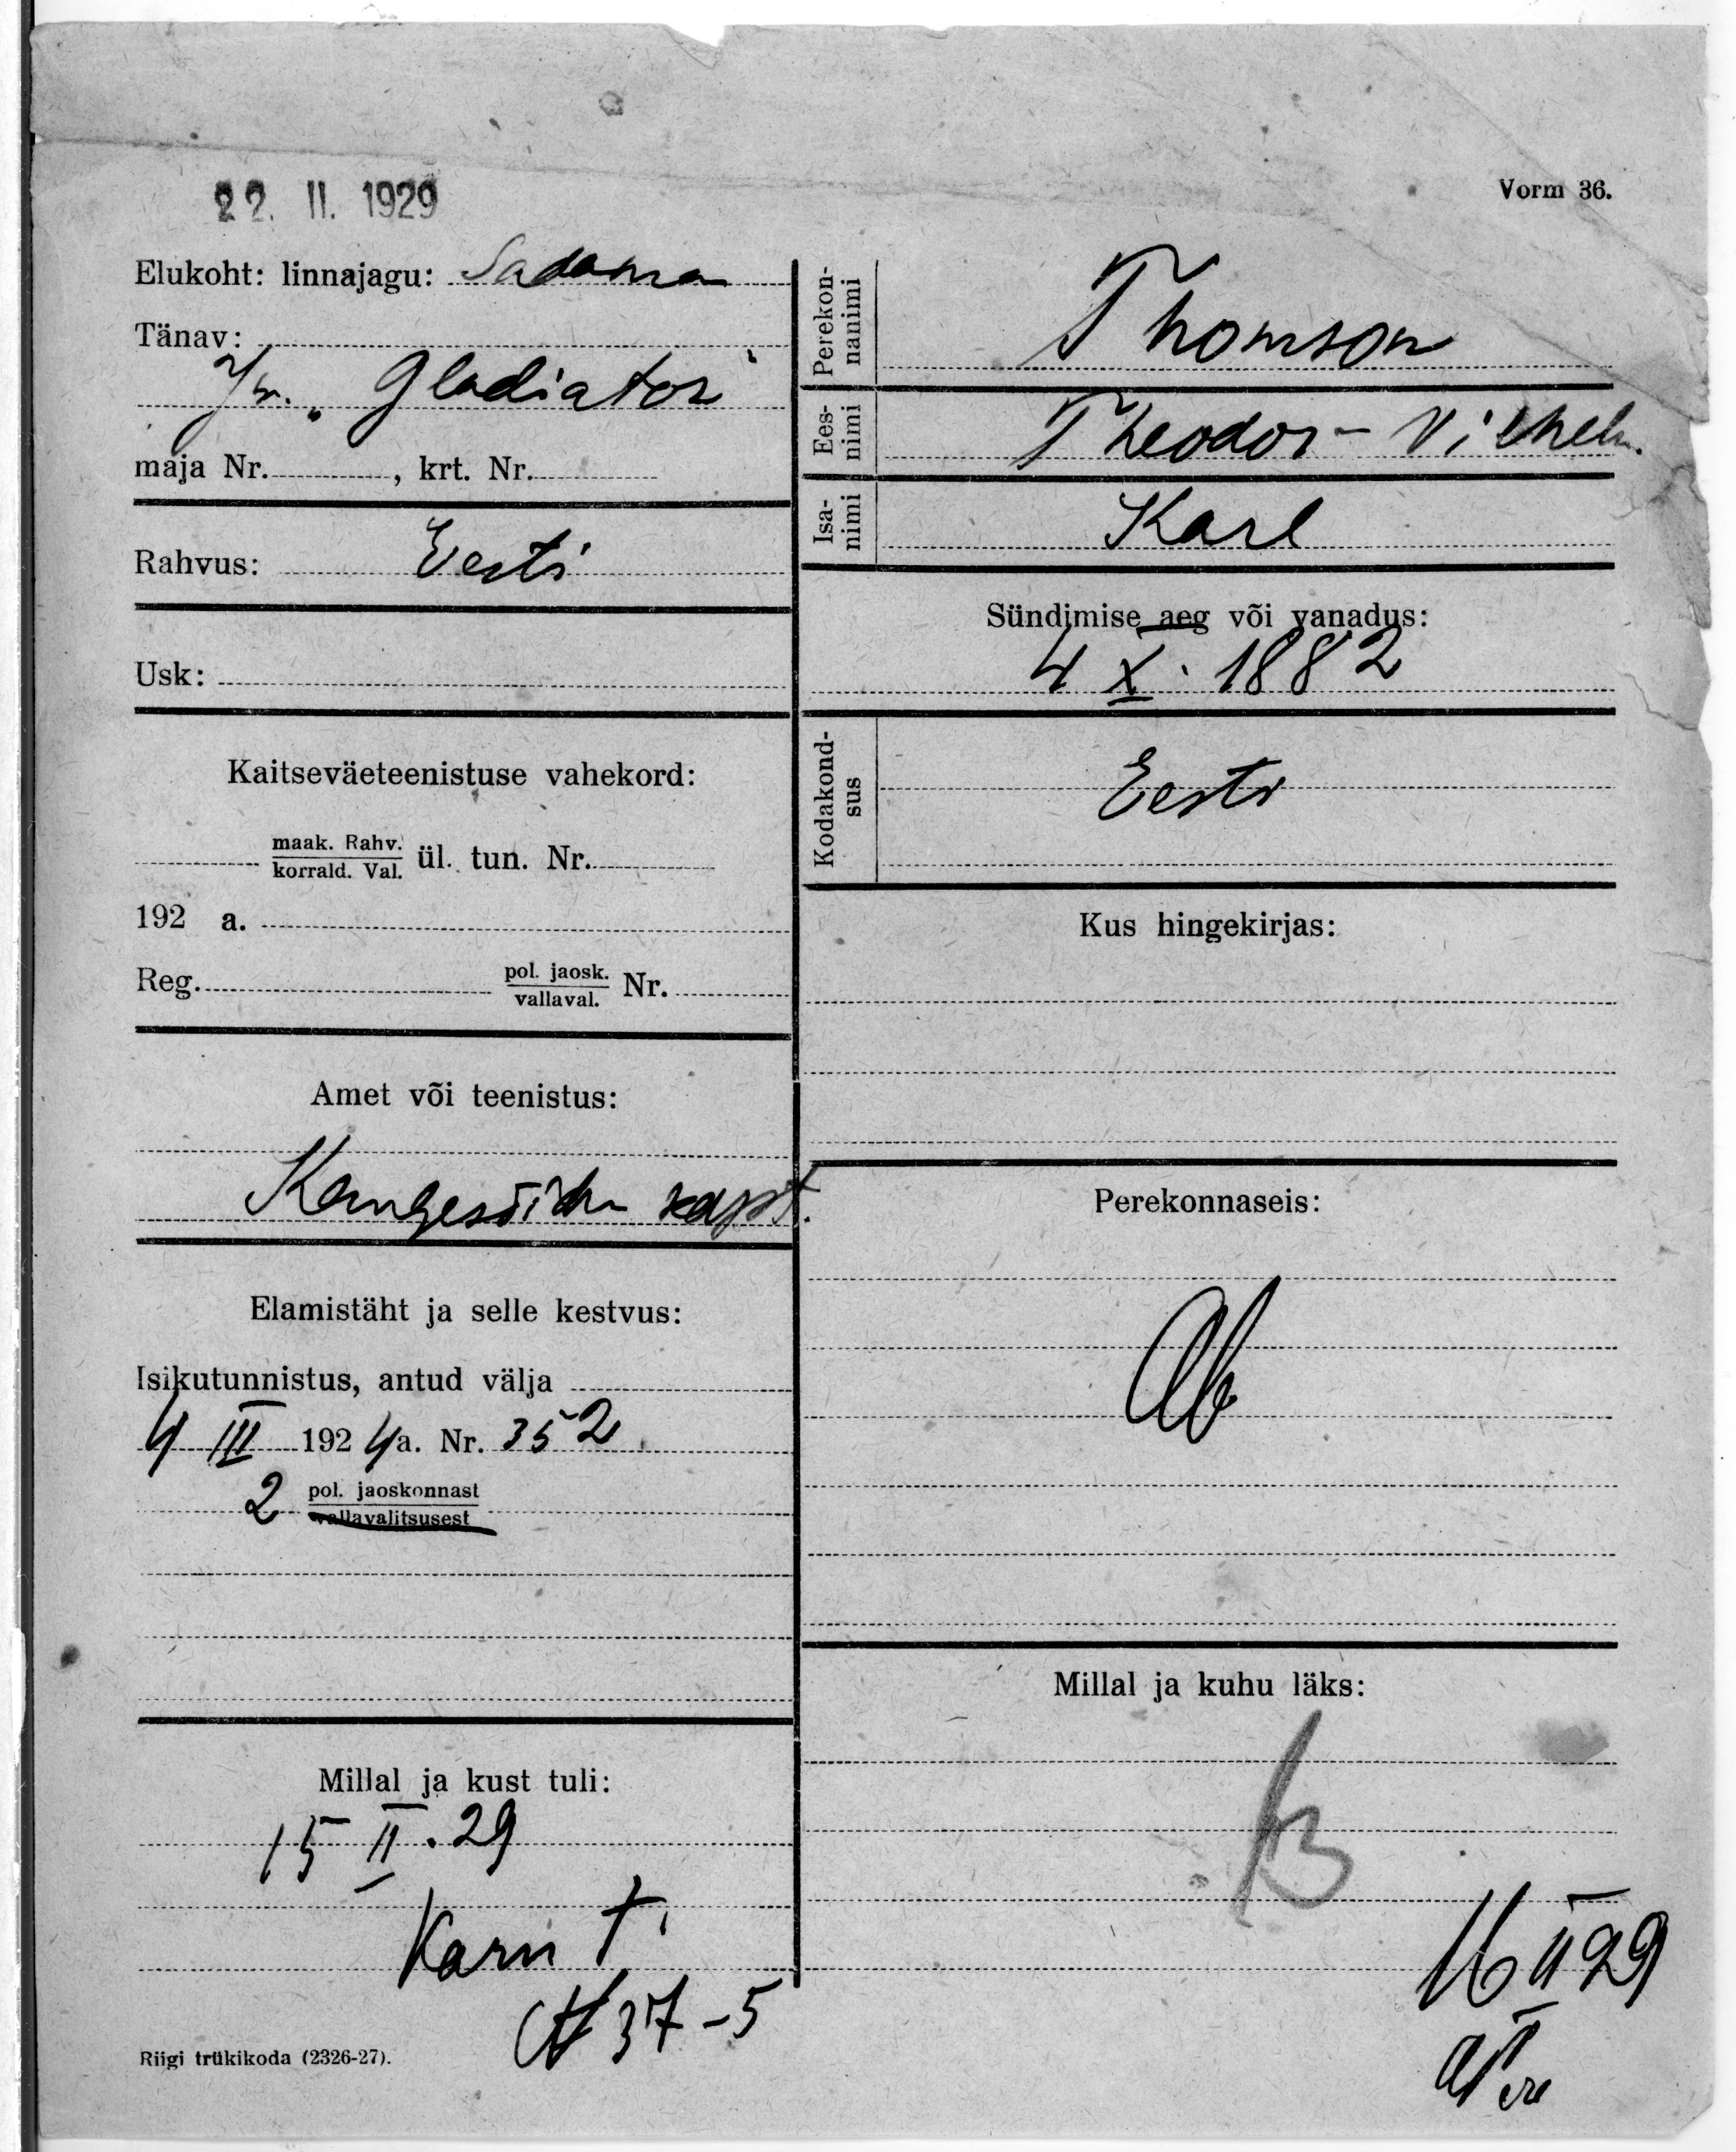 22. II. 1929
Vorm 36.
Elukoht: linnajagu: Sadama
Tänav:
"Gladiator"
maja Nr. , krt. Nr.
Rahvus: Eesti
Usk:
Kaitseväeteenistuse vahekord:
maak. Rahv.
korrald. Val. ül. tun. Nr.
192 a.
Reg. pol. jaosk.
vallaval. Nr.
Amet või teenistus:
Kaugesõidu kapt.
Elamistäht ja selle kestvus:
Isikutunnistus, antud välja
4 III 1924 a. Nr. 352
2 pol. jaoskonnast
vallavalitsusest
Millal ja kust tuli:
15 II. 29
Karu t.
N 37-5
Riigi trükikoda (2326-27).
Perekon-
nanimi
Thomson
Ees-
nimi
Theodor-Vilhelm.
Isa-
nimi
Karl
Sündimise aeg või vanadus:
4 X. 1882
Kodakond-
sus
Eesti
Kus hingekirjas:
Perekonnaseis:
Ab
Millal ja kuhu läks:
16 II 29